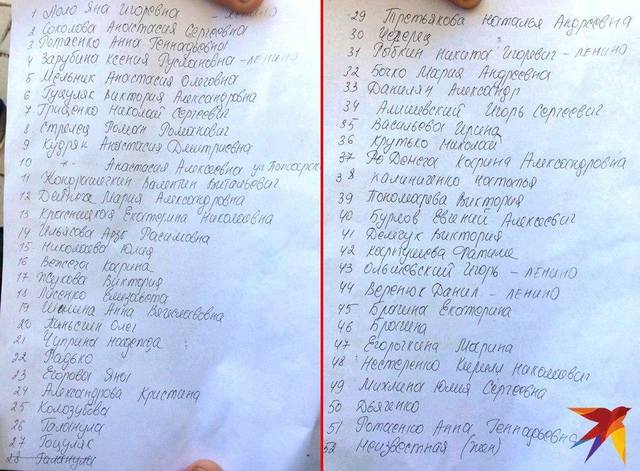 1 Лоло Яна Игоревна - Ленино
2 Соколова Анастасия Сергеевна
3 Потаенко Анна Геннадьевна
4 Зарубина Ксения Руслановна - ЛЕНИНО
5 Мельник Анастасия Олеговна
6 Гуцуляк Виктория Александровна
7 Гриценко Николай Сергеевич
8 Стрелец Роман Романович
9 Кудряк Анастасия Дмитриевна
10 Анастасия Алексеевна ул
11 Валентин Витальевич
12 Мария Александровна
13 Красницкая Екатерина Николаевна
14 Ильясова Арзе Расимовна
15 Николаева Юлия
16 Карина
17 Жукова Виктория
18 Лисенко Елизавета
19 Шишкина Анна Вячеславовна
20 Олег
21 Чуприна Надежда
22 Падько
23 Егорова Яна
24 Александрова Кристина
25 Колозубова
26
27 Гоцуляк
28
29 Третьякова Наталья Андреевна
30 Чеперец
31 Рыбкин Никита Игоревич - ЛЕНИНО
32 Бочко Мария Андреевна
33 Данилян Александр
34 Алишевский Игорь Сергеевич
35 Васильева Ирина
36 Крутько Николай
37 Денега Карина Александровна
38 Калиниченко Наталья
39 Пономарева Виктория
40 Бурлов Евгений Алексеевич
41 Демчук Виктория
42 Карпушева Фатиме
43 Ольшевский Игорь - ЛЕНИНО
44 Веренюк Данил - ЛЕНИНО
45 Брагина Екатерина
46 Брагина
47 Егорочкина Марина
48 Нестеренко Кирилл Николаевич
49 Михлина Юлия Сергеевна
50 Дьяченко
51 Потаенко Анна Геннадьевна
52 Неизвестная (жен)